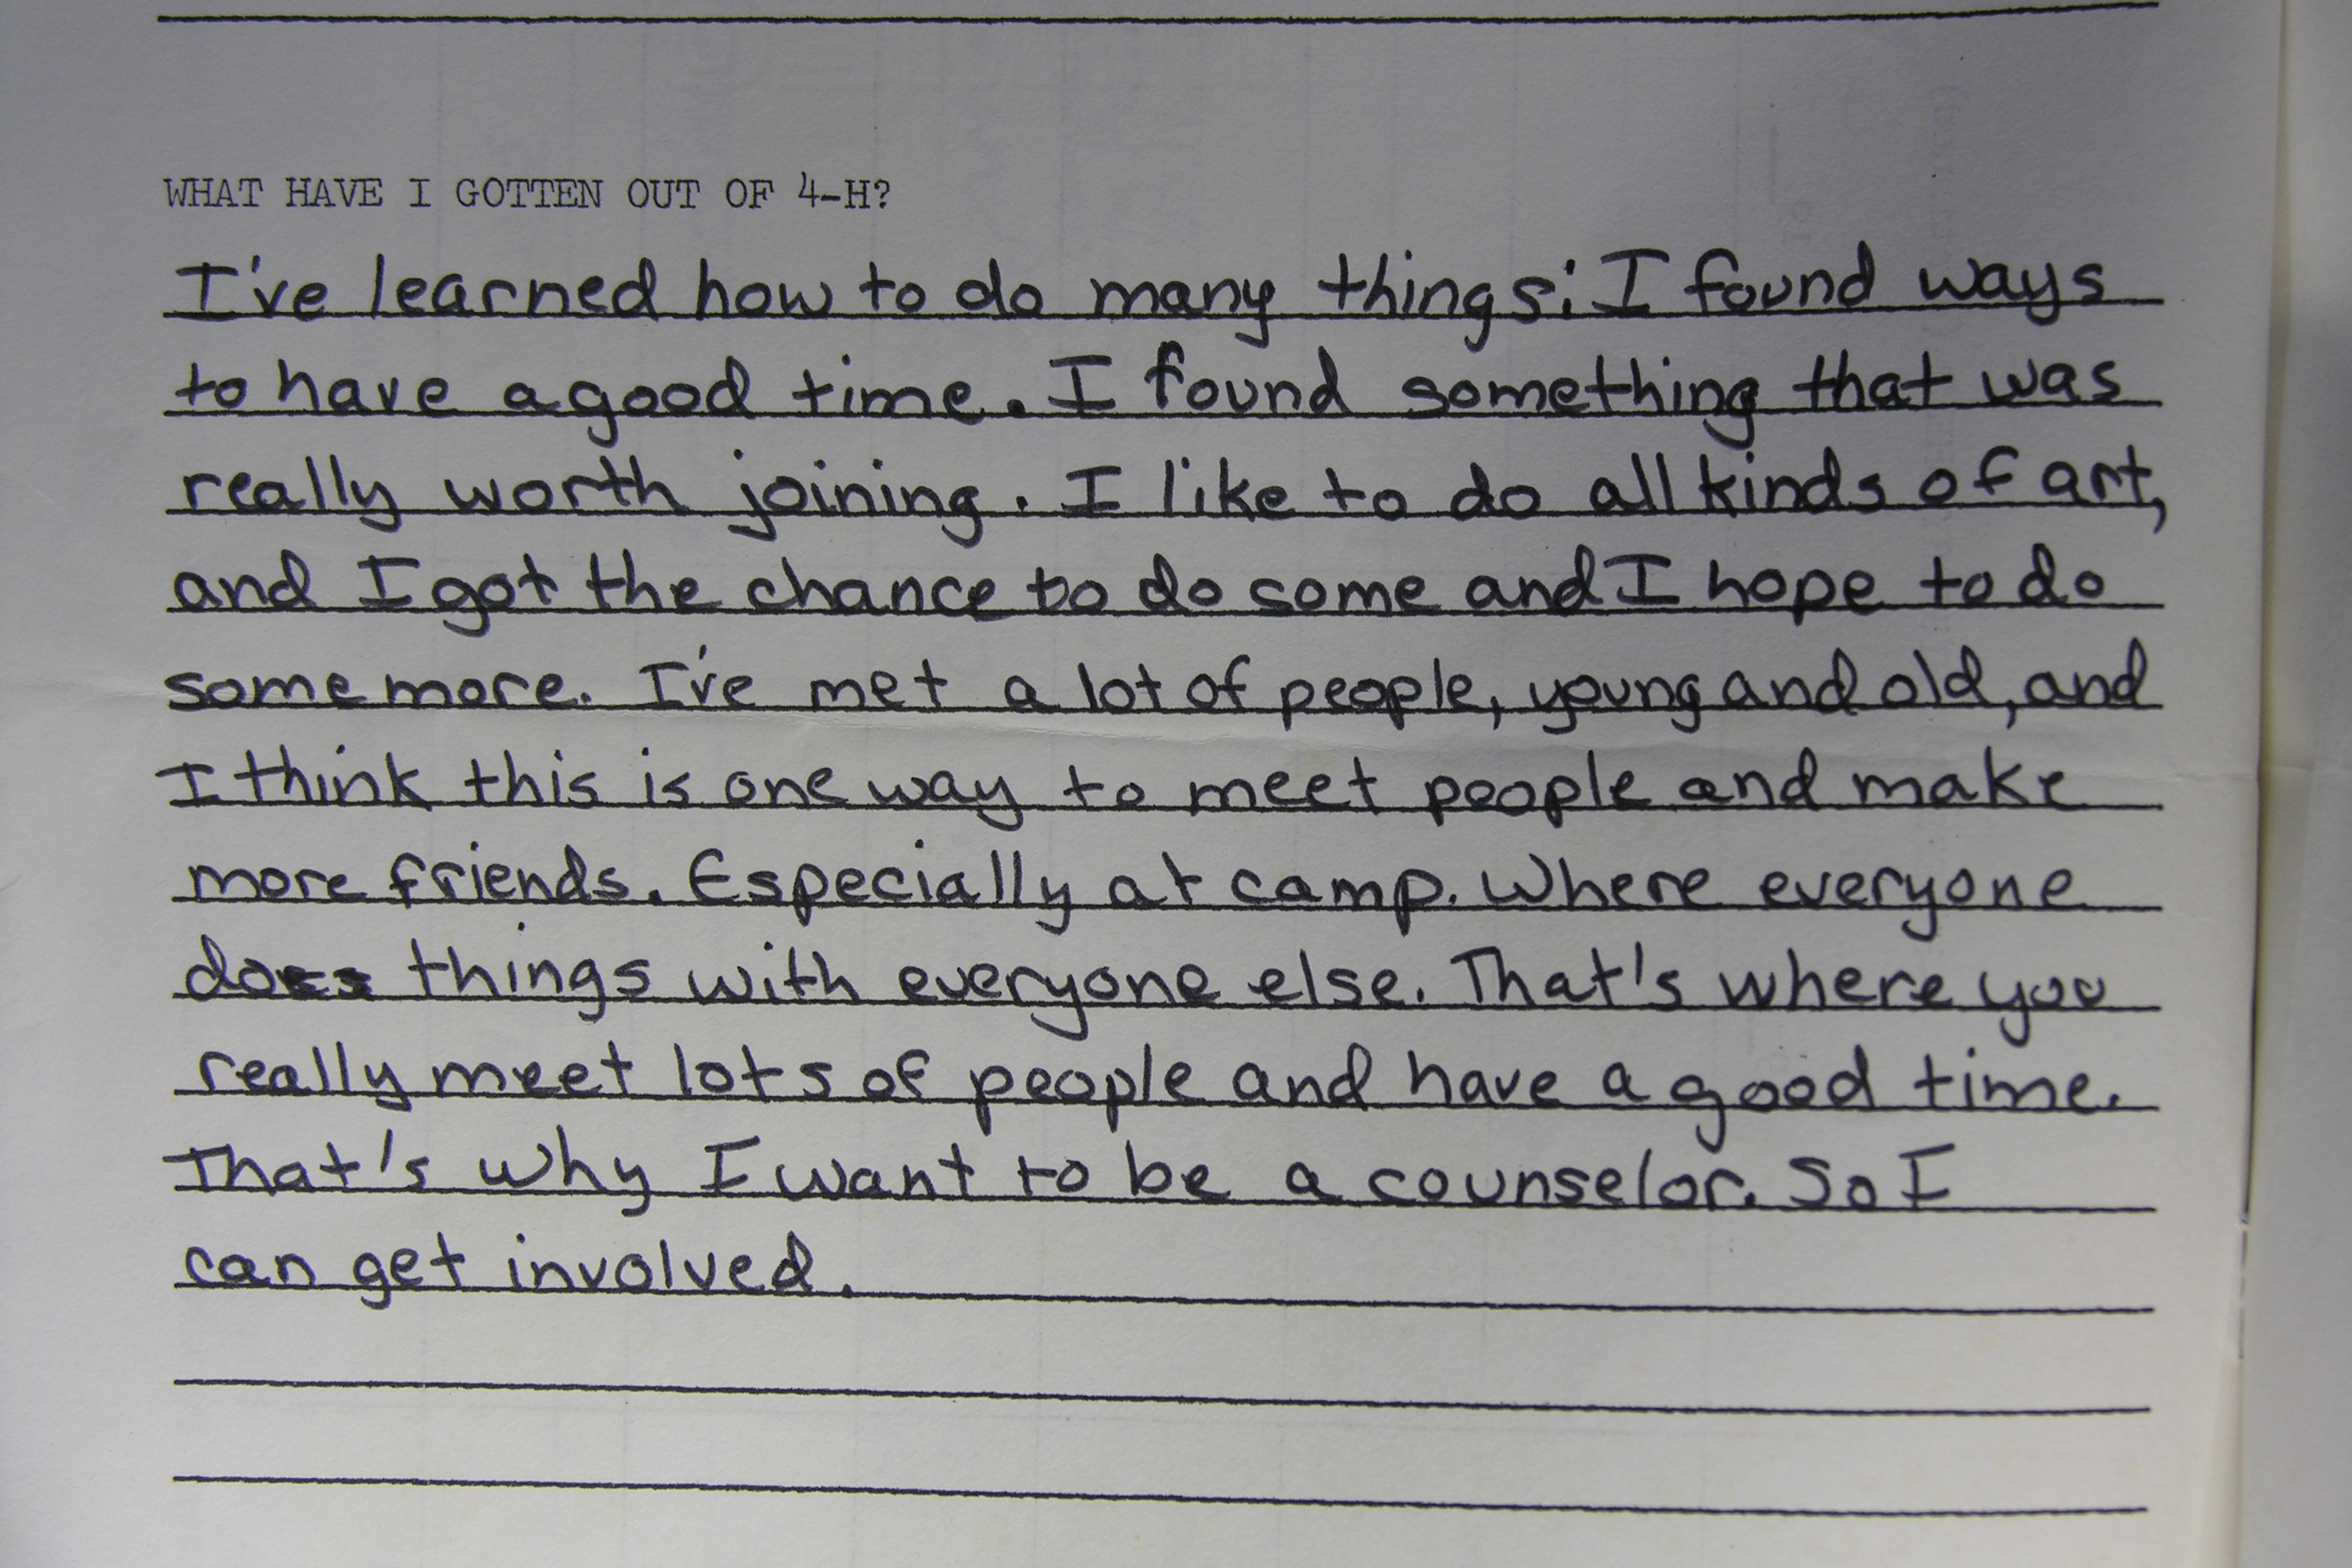 WHAT HAVE I GOTTEN OUT OF 4-H?
I've learned how to do many things; I found ways
to have a good time. I found something that was
really worth joining. I like to do all kinds of art,
and I got the chance to do some and I hope to do
some more. I've met a lot of people, young and old, and
I think this is one way to meet people and make
more friends. Especially at camp. Where everyone
does things with everyone else. That's where you
really meet lots of people and have a good time.
That's why I want to be a counselor. So I
can get involved.